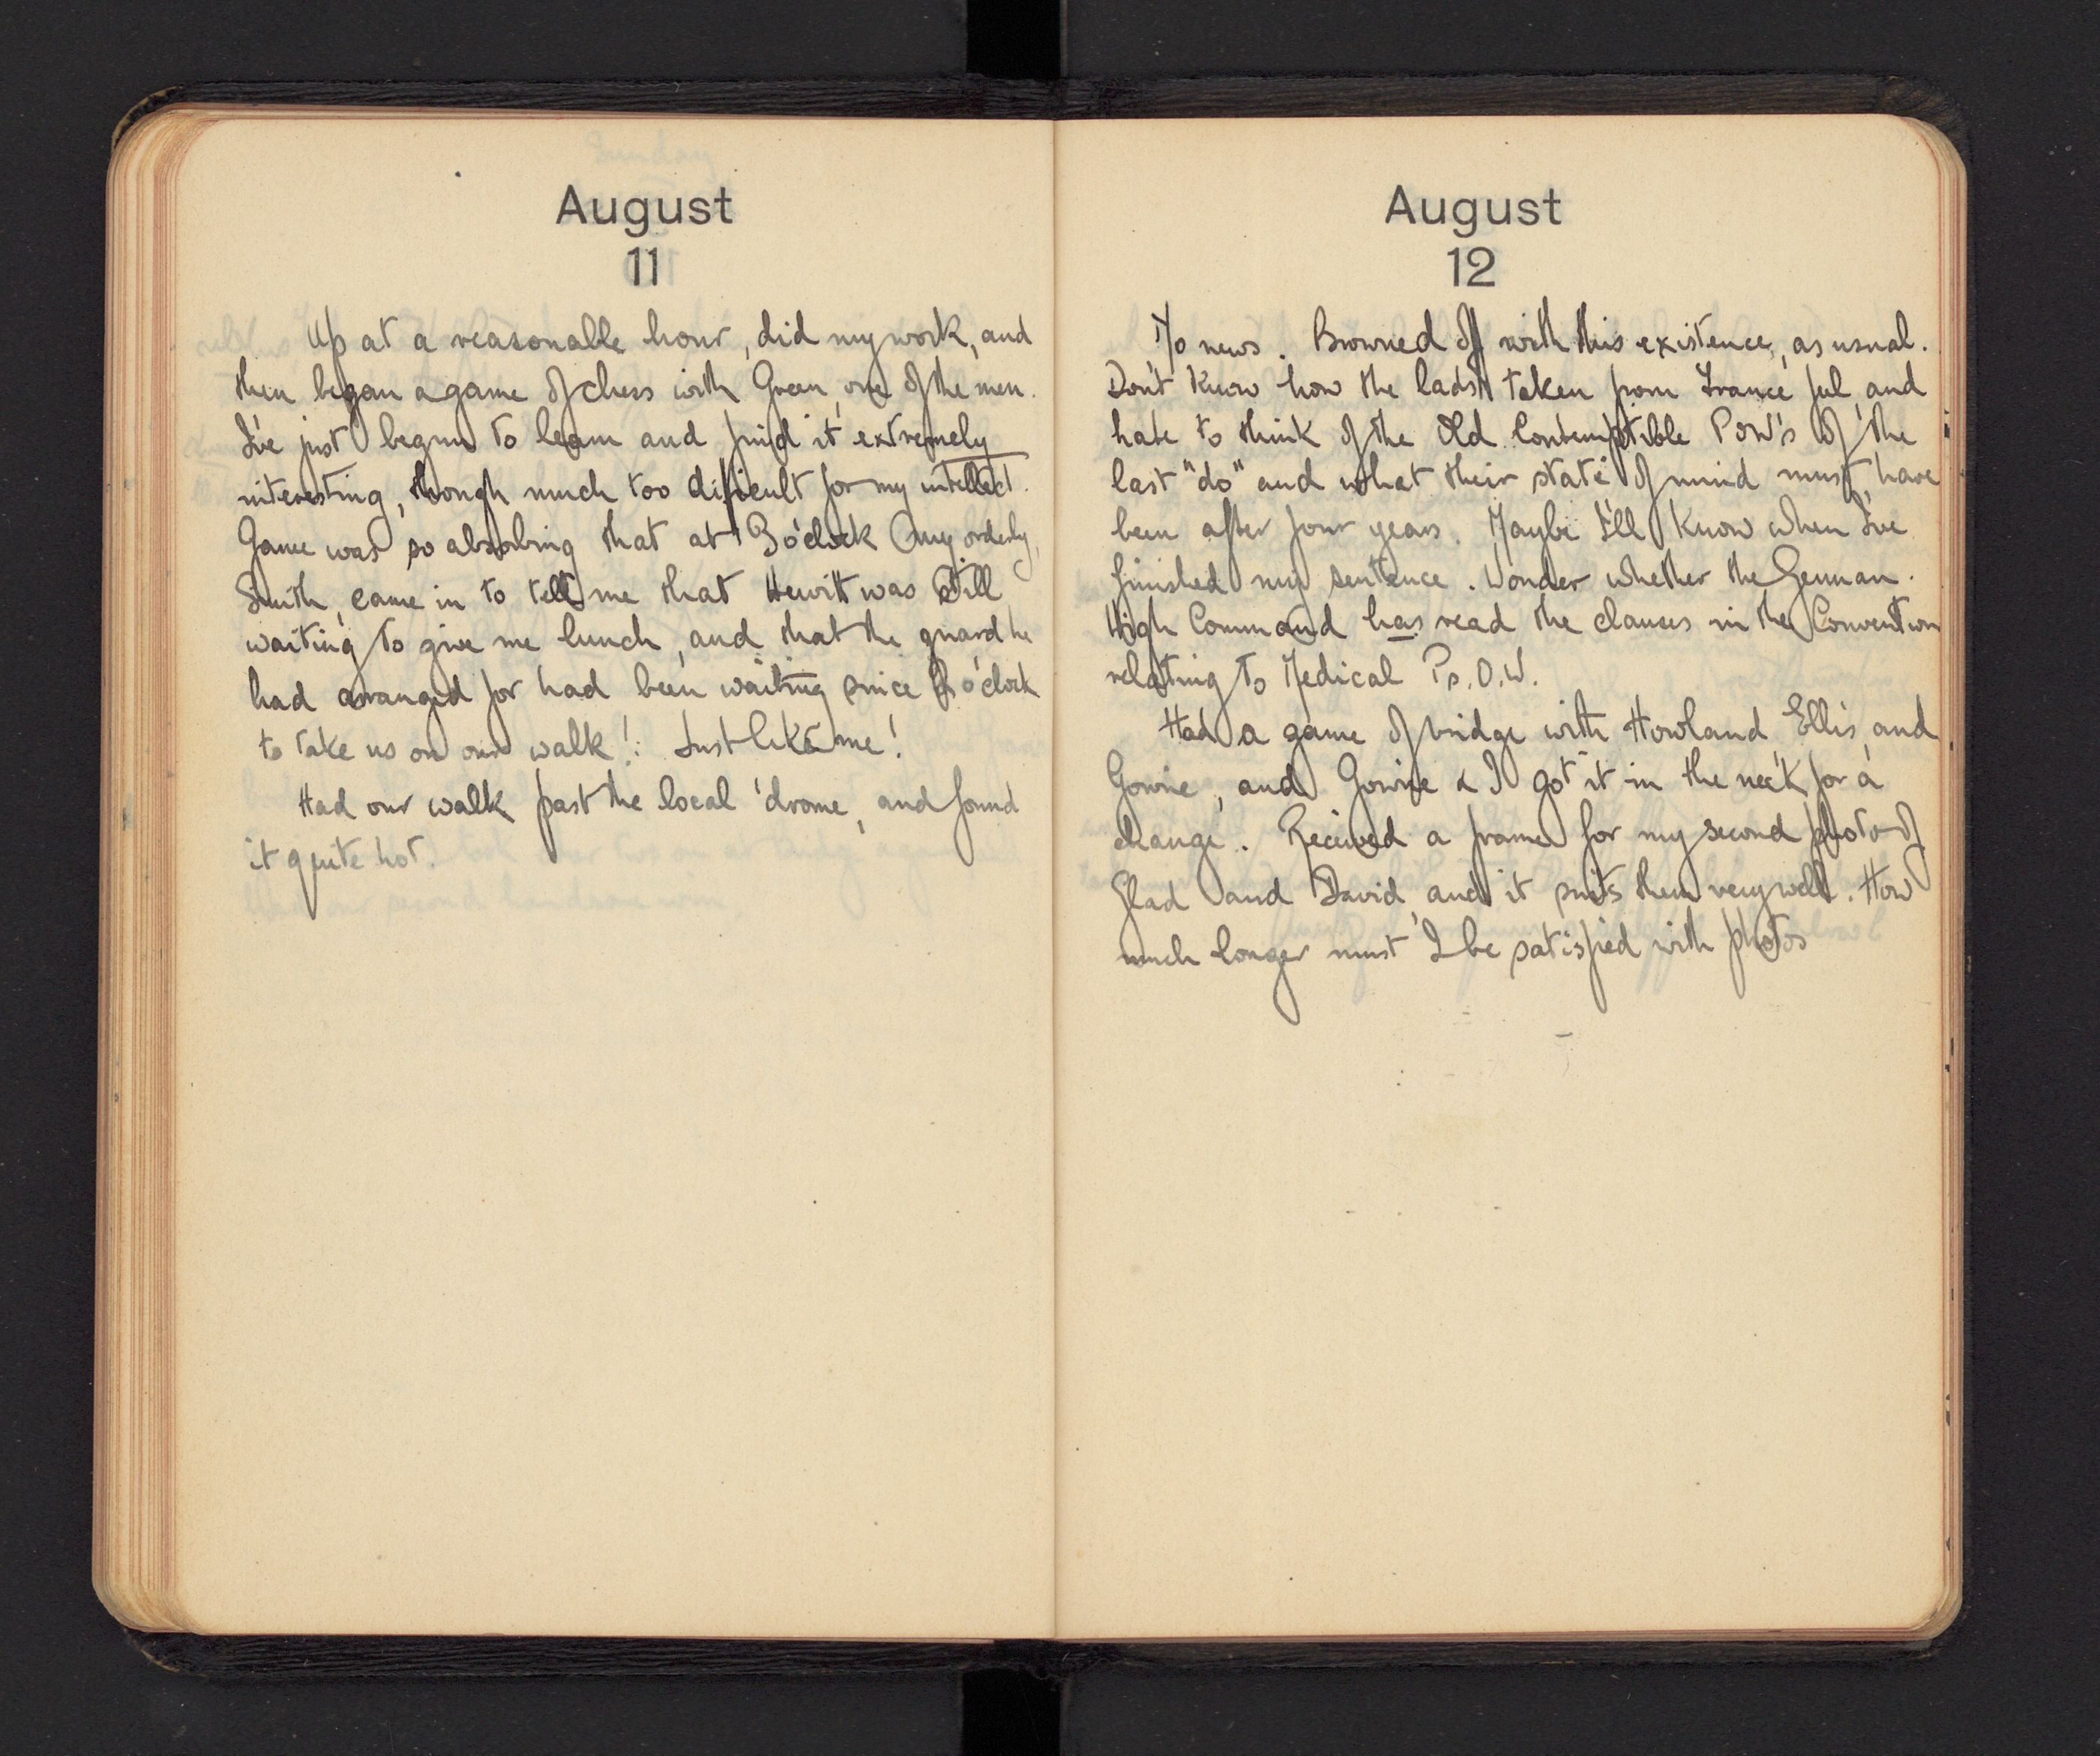 August
11
Up at a reasonable hour, did my work, and
then began a game of chess with Green, one of the men.
I've just begun to learn and find it extremely
interesting, though much too difficult for my intellect.
Game was so absorbing that at 3 o'clock my orderly,
Smith, came in to tell me that Hewitt was still
waiting to give me lunch, and that the guard he
had arranged for had been waiting since 2 o'clock
to take us on our walk! Just like me!
Had our walk past the local 'drome, and found
it quite hot.
August
12
No news. Browned off with this existence, as usual.
Don't know how the lads taken from France feel, and
hate to think of the Old Contemptible POW's of the
last "do" and what their state of mind must have
been after four years. Maybe I'll know when I've
finished my sentence. Wonder whether the German
High Command has read the clauses in the Convention
relating to Medical Ps.O.W.
Had a game of bridge with Howland, Ellis, and
Gowrie, and Gowrie & I got it in the neck for a
change. Received a frame for my second photo of
Glad and David, and it suits them very well. How
much longer must I be satisfied with photos